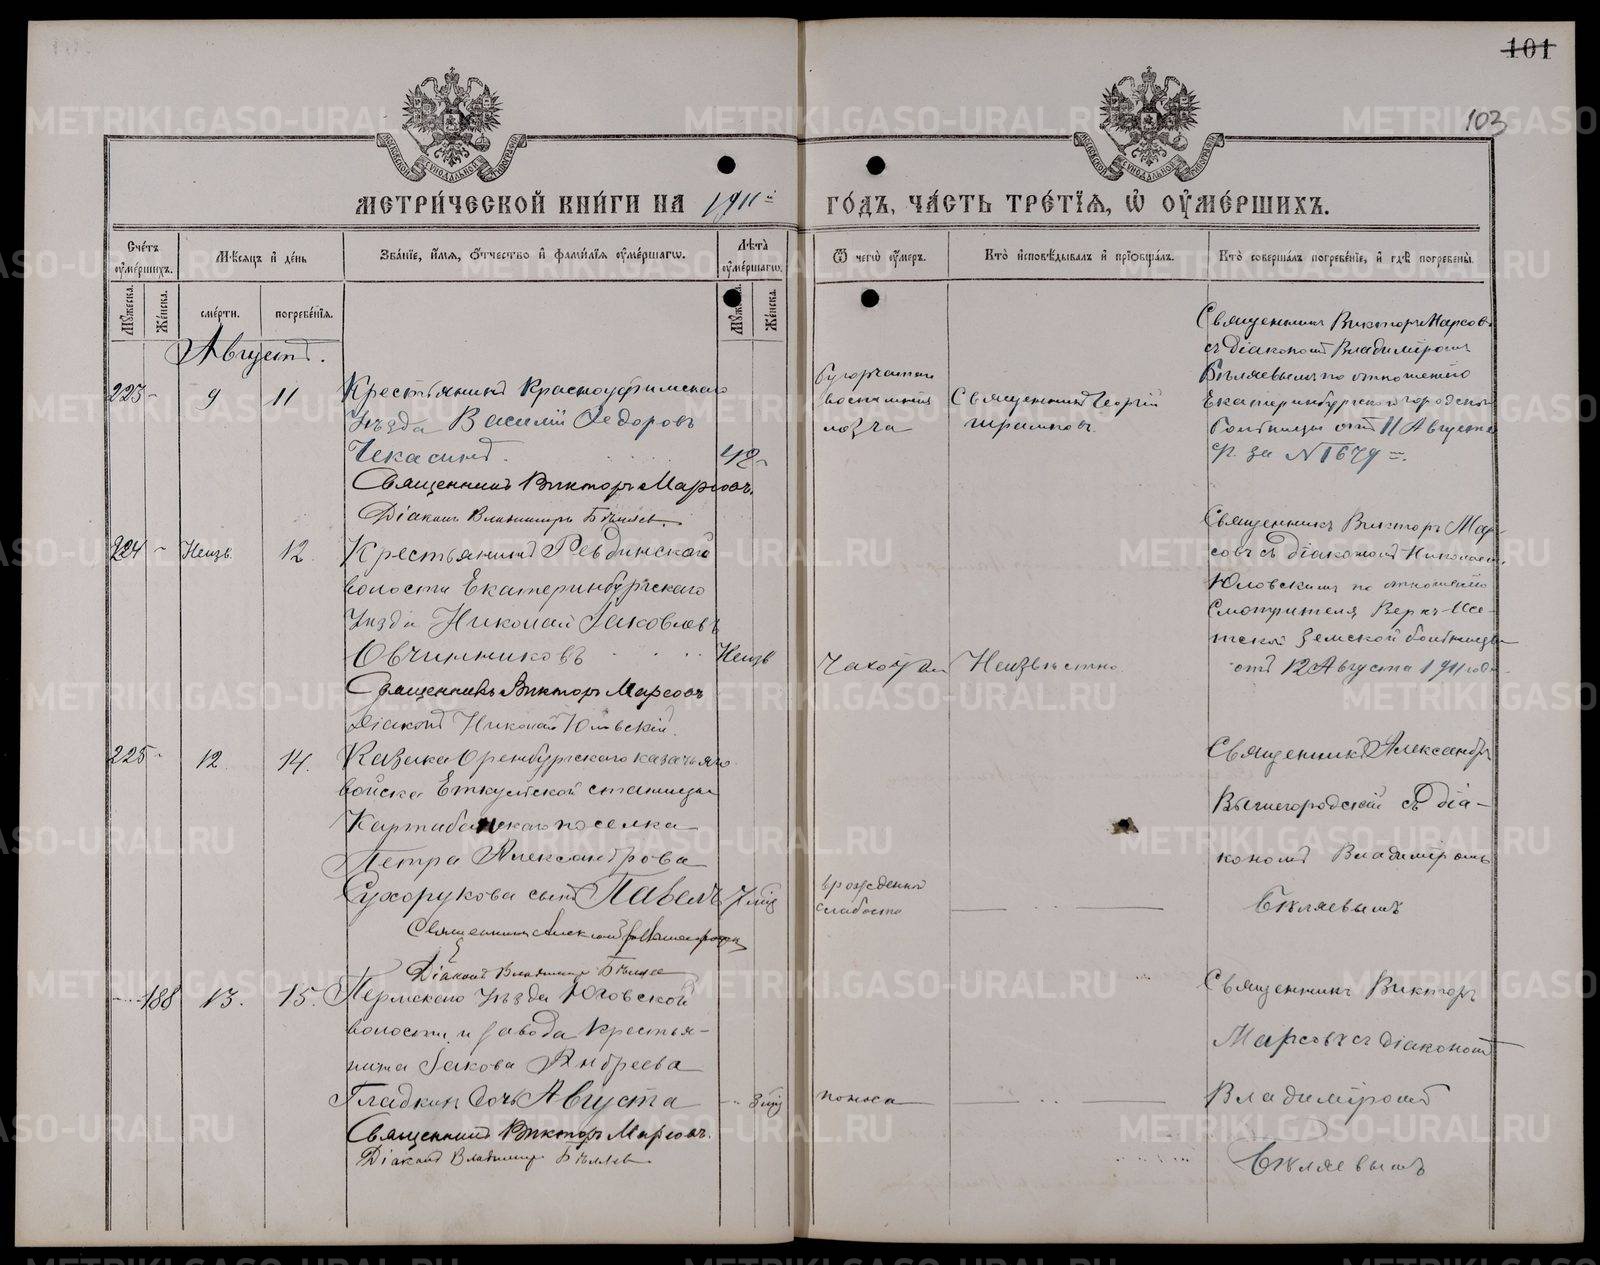 101
103
МЕТРИ́ЧЕСКОЙ КНИ́ГИ НА 1911 й ГО́ДЪ, ЧА́СТЬ ТРЕ́ТІЯ, Ѡ ОУМЕ́РШИХЪ.
Сче́тъ оуме́ршихъ.
Мѣсяцъ и де́нь
Зва́ніе, и́мя, о́тчество и фами́лія оуме́ршагѡ.
Лѣта̀ оуме́ршагѡ.
Ѿ чегѡ̀ оу́меръ.
Кто̀ исповѣ́дывалъ и пріѡбща́лъ.
Кто̀ соверша́лъ погребе́ніе, и гдѣ̀ погребены̀.
Мꙋ́жеска.
Же́нска.
сме́рти.
погребе́нія.
Мꙋ́жеска.
Же́нска.
Августъ.
223 - 9 11
Крестьянинъ Красноуфимскаго
Уѣзда Василій Ѳедоровъ
Чекасинъ. 42 -
Священникъ Викторъ Марсовъ.
Діаконъ Владимиръ Бѣляевъ.
бугорчатки
воспаленія
легкихъ
Священникъ Георгій
Священникъ Викторъ Марсовъ
съ діакономъ Владиміромъ
Бѣляевымъ по отношенію
Екатеринбургской городской
больницы отъ 11 Августа
с/г. за № 1679 =.
224 - Неизв. 12.
Крестьянинъ Ревдинскаго
волости Екатеринбургскаго
Уѣзда Николай Іаковлевъ
Овчинниковъ Неизв
Священникъ Викторъ Марсовъ
Діаконъ Николай Юловскій.
Чахотки
Неизвѣстно.
Священникъ Викторъ Мар-
совъ съ діакономъ Николаемъ
Юловскимъ по отношенію
Смотрителя Верхъ-Исе-
тской земской больницы
отъ 12 Августа 1911 года.
225 - 12. 14.
Казака Оренбургскаго казачьяго
войска Еткульской станицы
поселка
Петра Александрова
Сухорукова сынъ Павелъ 7 мѣс
Священникъ Александръ Вышегородскій
Діаконъ Владимиръ Бѣляев
врожденной
слабости
Священникъ Александръ
Вышегородскій съ діа-
кономъ Владиміромъ
Бѣляевымъ
188 13. 15.
Пермскаго Уѣзда Юговской
волости и завода Крестья-
нина Іакова Андреева
Гладкихъ дочь Августа 3 мѣс
Священникъ Викторъ Марсовъ.
Діаконъ Владимиръ Бѣляевъ
поноса
Священникъ Викторъ
Марсовъ съ діакономъ
Владиміромъ
Бѣляевымъ
METRIKI.GASO-URAL.RU